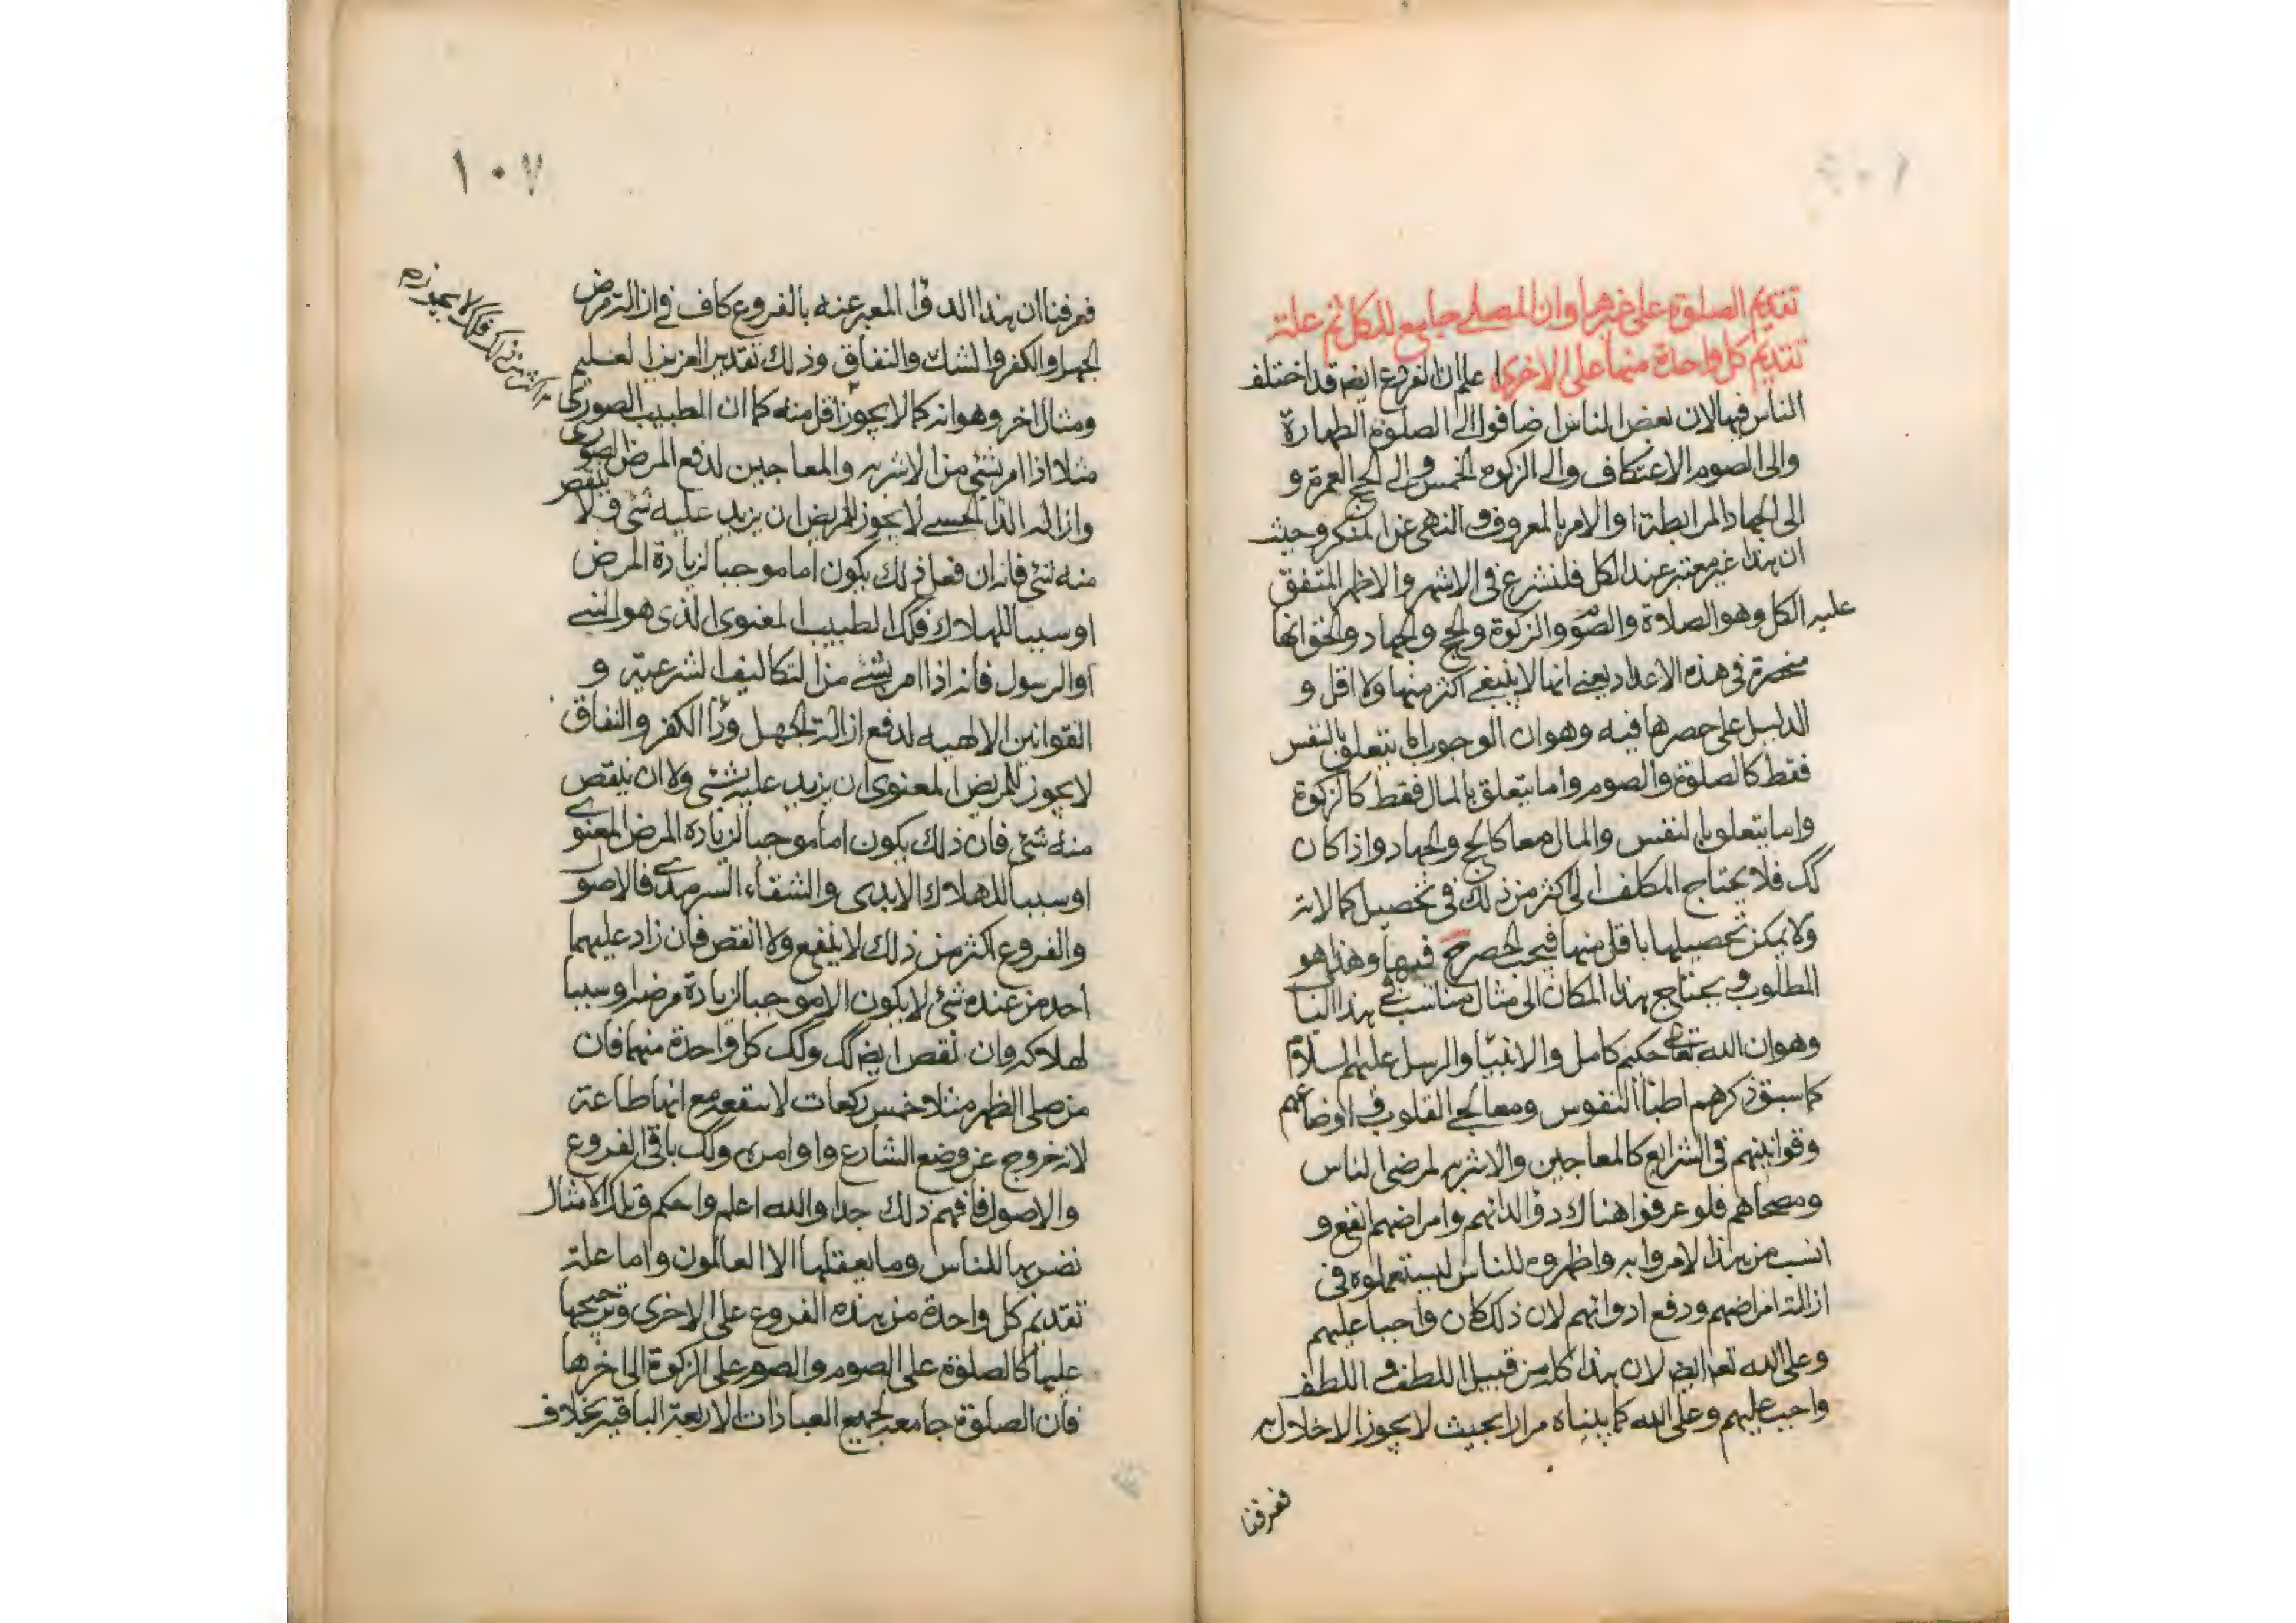 تقديم الصلوة على غيرها وان المصلے جامع للكل ثم علة
تقديم كل واحدة منها على الاخرى اعلم ان الفروع ايضه قد اختلف
الناس فيها لان بعض الناس اضافوا الى الصلوة الطهارة
والى الصوم الاعتكاف والى الزكوة الخمس والى الحج العمرة و
الى الجهاد المرابطة او الامر بالمعروف والنهى عن المنكر وحيث
ان هذا غير معتبر عند الكل فلنشرع فى الاشهر والاظهر المتفق
عليه الكل وهو الصلاة والصوم والزكوة والحج والجهاد والحق انها
منحصرة فى هذه الاعداد يعنے انها لا ينبغے اكثر منها ولا اقل و
الدليل على حصرها فيه وهو ان الوجوب اما يتعلق بالنفس
فقط كالصلوة والصوم واما يتعلق بالمال فقط كالزكوة
واما يتعلق بالنفس والمال معا كالحج والجهاد واذا كان
كك فلا يحتاج المكلف الى اكثر من ذلك فى تحصيل كمالاته
ولا يمكن تحصيلها باقل منها فيجب الحصرح فيها وهذا هو
المطلوب ويحتاج هذا المكان الى مثال مناسب فى هذا البا
وهو ان الله تعالى حكيم كامل والانبيا والرسل عليهم السلام
كما سبق ذكرهم اطبا النفوس ومعالجے القلوب فى اوضاعهم
وقوانينهم فى الشرايع كالمعاجين والاشربه لمرضى الناس
ومصحاهم فلو عرفوا هناك دوا لدائهم وامراضهم انفع و
انسب من هذا لامروا به واظهروه للناس ليستعملوه فى
ازالة امراضهم ودفع ادوائهم لان ذلك كان واجبا عليهم
وعلى الله تعه ايضه لان هذا كله من قبيل اللطف واللطف
واجب عليهم وعلى الله كما بيناه مرارا بحيث لا يجوز الاخلال به
فعرفنا
١٠٧
فعرفنا ان هذا الدوا المعبر عنه بالفروع كاف فى ازالة مرض
الجهل والكفر والشك والنفاق وذلك تقدير العزيز العليم
ومثال اخر وهو انه كما لا يجوز اقل منه كما ان الطبيب الصورى
اكثر من ذلك فكك لا يجوز
مثلا اذا امر بشئ من الاشربه والمعاجين لدفع المرض الصورى
وازالة الدا الحسے لا يجوز للمريض ان يزيد عليه شئ ولا ينقص
منه شئ فانه ان فعل ذلك يكون اما موجبا لزيادة المرض
او سببا للهلاك فكك الطبيب المعنوى الذى هو النبے
او الرسول فانه اذا امر بشئے من التكاليف الشرعيه و
القوانين الالهيه لدفع ازالة الجهل ودأ الكفر والنفاق
لا يجوز للمريض المعنوى ان يزيد عليه شئ ولا ان ينقص
منه شئ فان ذلك يكون اما موجبا لزيادة المرض المعنوى
او سببا للهلاك الابدى والشقاء السرمدے فالاصول
والفروع اكثر من ذلك لا ينفع ولا انقص فان زاد عليهما
احد من عنده شئ لا يكون الا موجبا لزيادة مرضه او سببا
لهلاكه وان نقص ايضه كك وكك كل واحدة منهما فان
من صلى الظهر مثلا خمس ركعات لا ينفعه مع انها طاعة
لانه خروج عن وضع الشارع واوامره وكك باقى الفروع
والاصول فافهم ذلك جدا والله اعلم واحكم وتلك الامثال
نضربها للناس وما يعقلها الا العالمون واما علة
تقديم كل واحدة من هذه الفروع على الاخرى وترجيحها
عليها كالصلوة على الصوم والصوم على الزكوة الى اخرها
فان الصلوة جامعة لجميع العبادات الاربعة الباقيه بخلاف